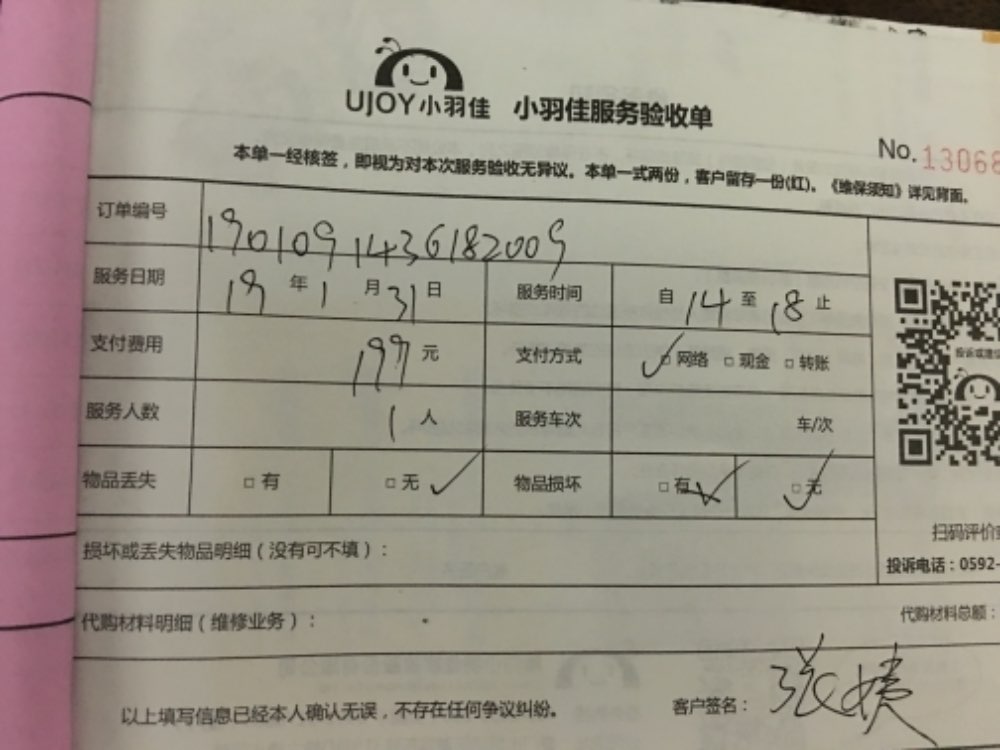 UJOY小羽佳 小羽佳服务验收单
No. 13068
本单一经核签，即视为对本次服务验收无异议。本单一式两份，客户留存一份(红)。《维保须知》详见背面。
订单编号 1901091436182009
服务日期 19年1月31日 服务时间 自14至18止
支付费用 199元 支付方式 ✓□网络 □现金 □转账
服务人数 1人 服务车次 车/次
物品丢失 □有 □无✓ 物品损坏 □有✓ □无✓
投诉或建议
损坏或丢失物品明细（没有可不填）：
扫码评价
投诉电话：0592-
代购材料明细（维修业务）：
代购材料总额：
以上填写信息已经本人确认无误，不存在任何争议纠纷。 客户签名：张姨